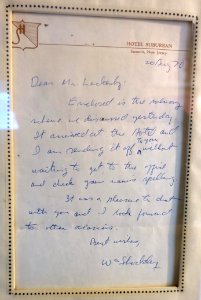 HOTEL SUBURBAN
Summit, New Jersey
20 Aug 70
Dear Mr.
Enclosed is the
where we discussed yesterday
It arrived at the Hotel and
to you
I am sending it off without
waiting to get to the office
and check your name's spelling
It was a pleasure to chat
with you and I look forward
to other occasions.
Best wishes,
W Shockley